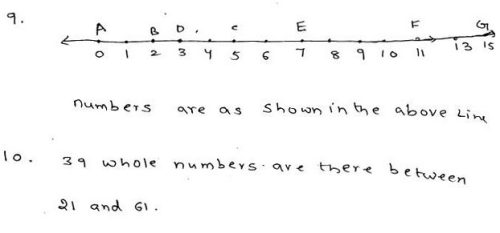 9.
A B D . C E F G
0 1 2 3 4 5 6 7 8 9 10 11 13 15
numbers are as shown in the above Line
10. 39 whole numbers are there between
21 and 61.